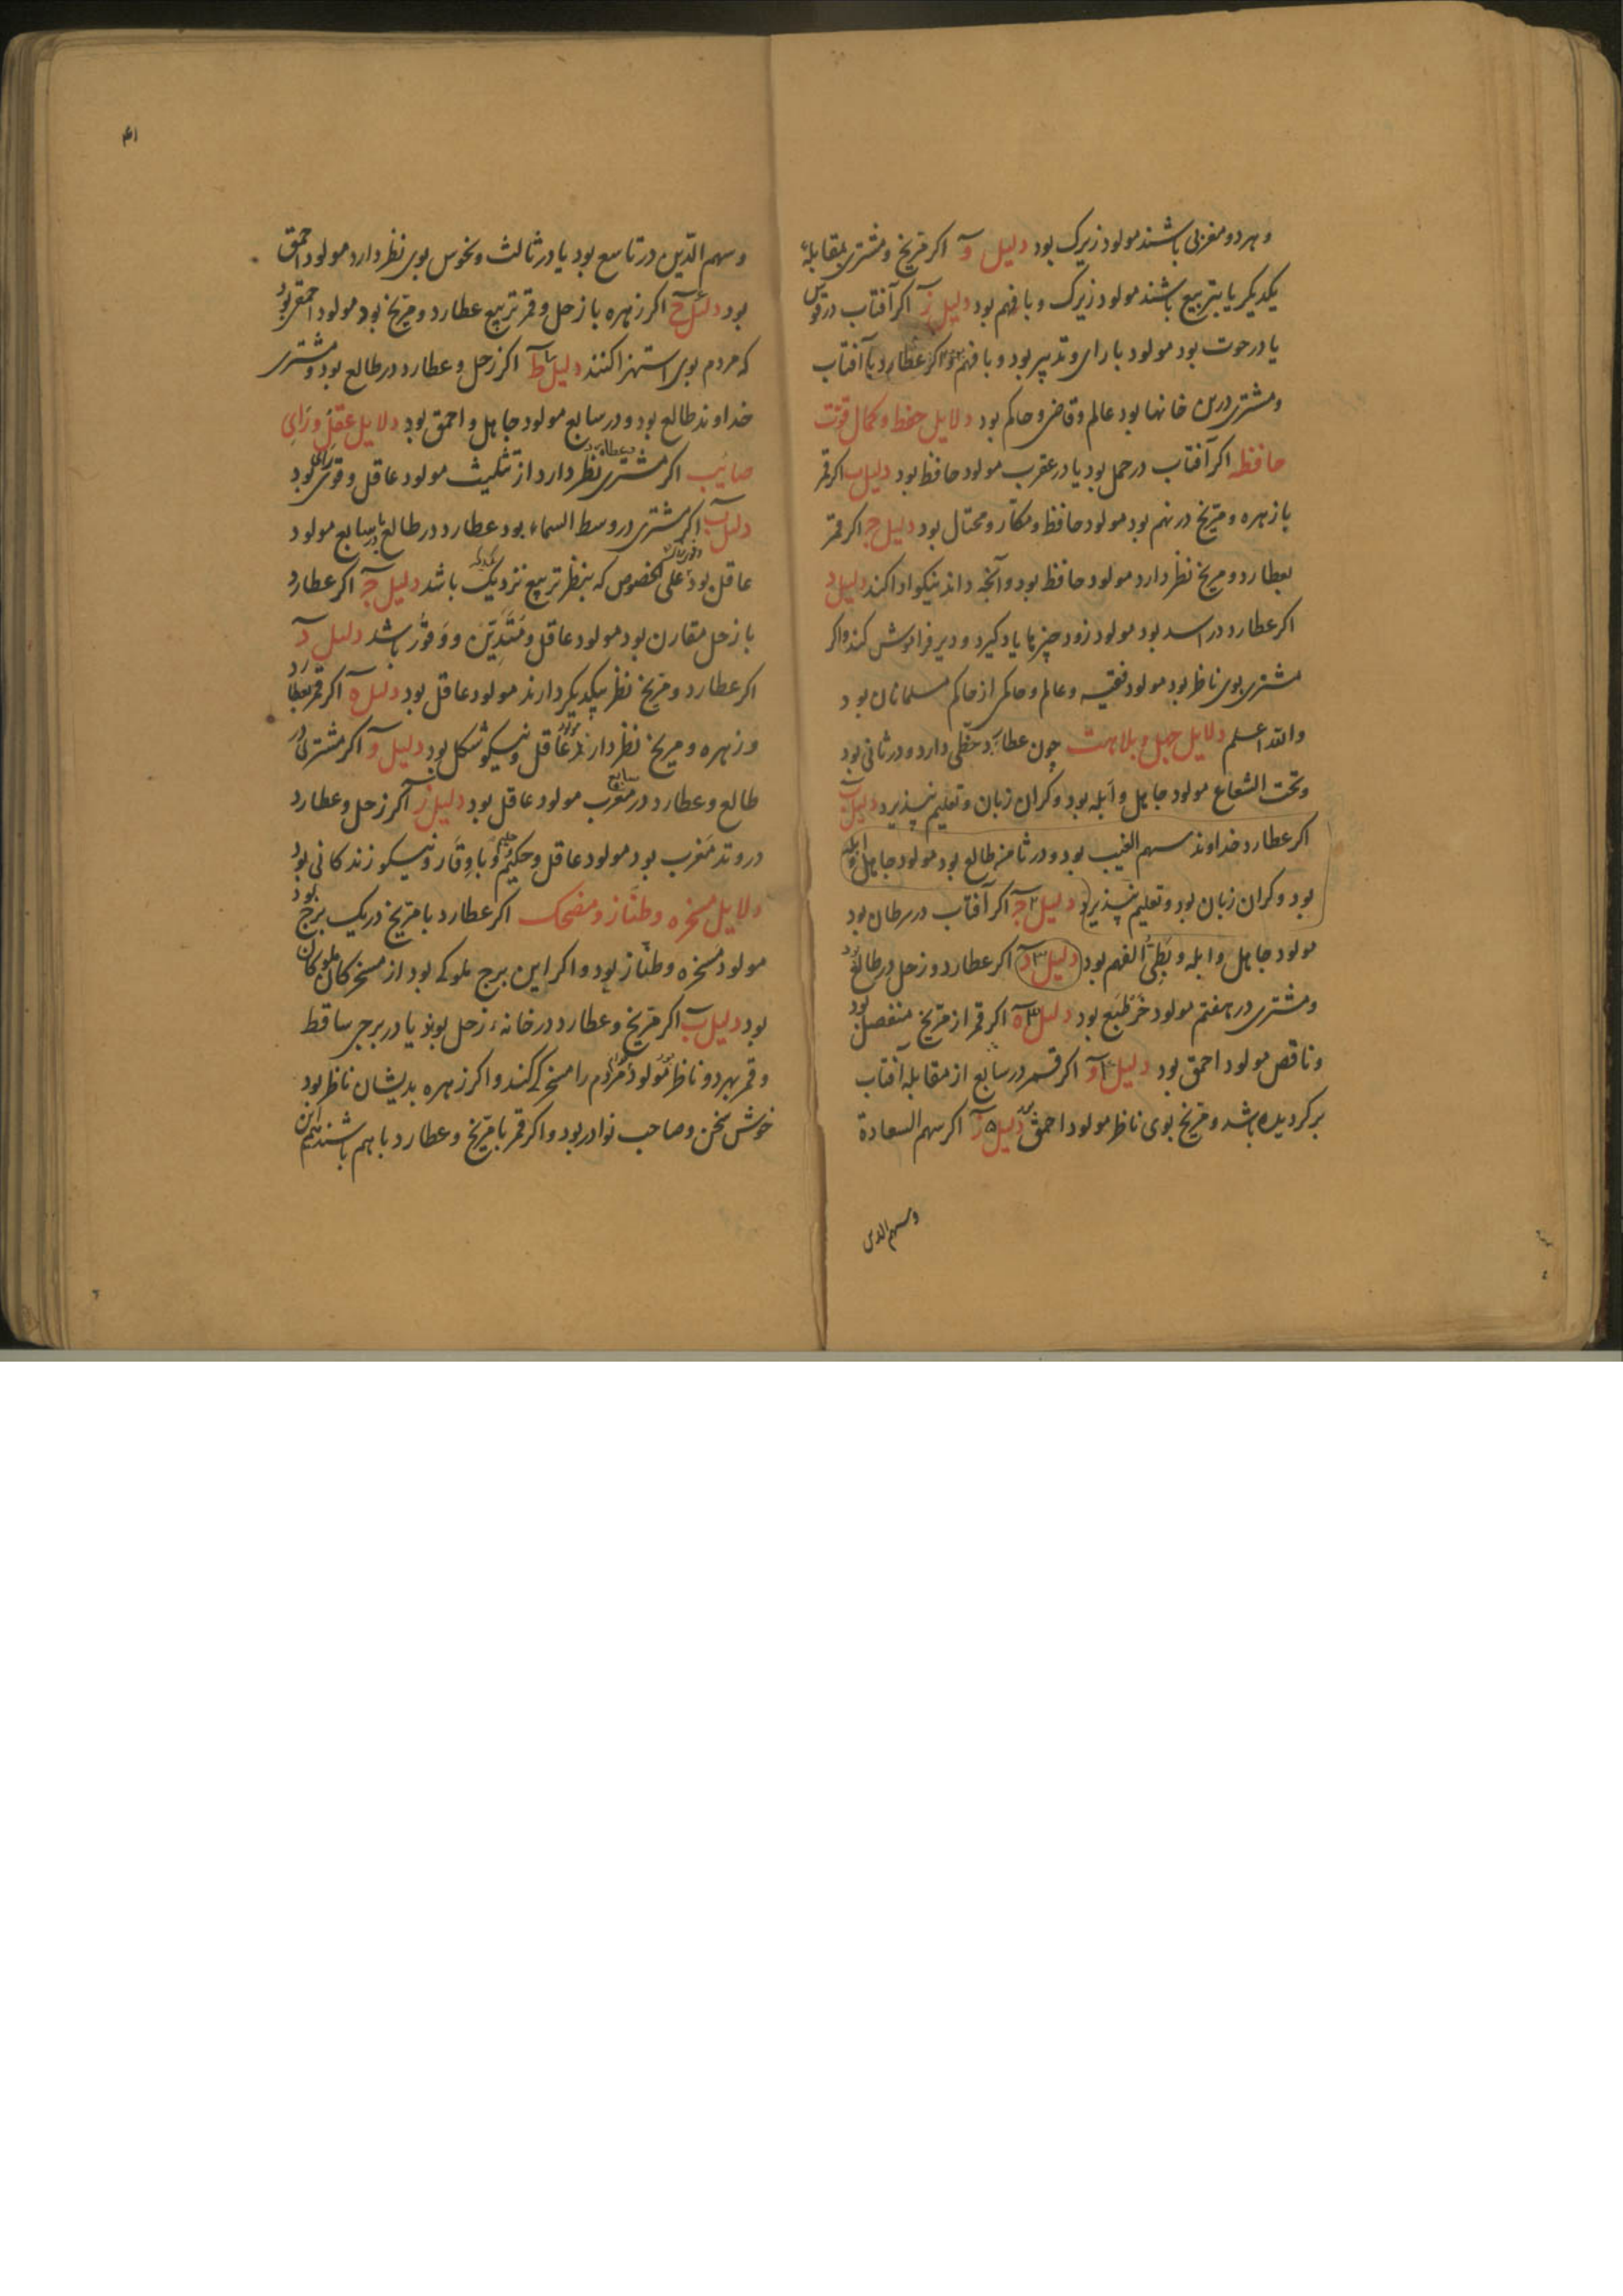 و هر دو مغربی باشند مولود زیرک بود دلیل و اکر مریخ و مشتری بمقابلهٔ
یکدیکر یا بتربیع باشند مولود زیرک و با فهم بود دلیل ز اکر آفتاب در قوس
یا در حوت بود مولود با رای و تدبیر بود و با فهم و اکر عطارد با آفتاب
و مشتری درین خانها بود عالم و قاضی و حاکم بود دلایل حفظ و کمال قوّت
حافظه اکر آفتاب در حمل بود یا در عقرب مولود حافظ بود دلیل ب اکر قمر
با زهره و مریخ در نهم بود مولود حافظ و مکّار و محتال بود دلیل ج اکر قمر
بعطارد و مریخ نظر دارد مولود حافظ بود و آنچه داند نیکو ادا کند دلیل د
اکر عطارد در اسد بود مولود زود چیزها یاد کیرد و دیر فراموش کند و اکر
مشتری بوی ناظر بود مولود فقیه و عالم و حاکمی از حاکم مسلمانان بود
والله اعلم دلایل جهل و بلاهت چون عطارد حظّی دارد و در ثانی بود
و تحت الشعاع مولود جاهل و ابله بود و کران زبان و تعلیم نپذیرد دلیل ب
اکر عطارد خداوند سهم الغیب بود و در ثامن طالع بود مولود جاهل و ابله
بود و کران زبان بود و تعلیم نپذیرد دلیل ۲ ج اکر آفتاب در سرطان بود
مولود جاهل و ابله و بطیُ الفهم بود دلیل ۳ د اکر عطارد و زحل در طالع بود
و مشتری در هفتم مولود خرطبع بود دلیل ه اکر قمر از مریخ منفصل بود
و ناقص مولود احمق بود دلیل و اکر قمر در سابع از مقابلهٔ آفتاب
برکردیده باشد و مریخ بوی ناظر مولود احمق بود دلیل ۵ ز اکر سهم السعادة
وسهم الدین
۴۱
و سهم الدّین در تاسع بود یا در ثالث و نحوس بوی نظر دارد مولود احمق
بود دلیل ح اکر زهره با زحل و قمر تربیع عطارد و مریخ بود مولود احمقی بود
که مردم بوی استهزا کنند دلیل ط اکر زحل و عطارد در طالع بود و مشتری
خداوند طالع بود و در سابع مولود جاهل و احمق بود دلایل عقل و رای
صایب اکر مشتری بعطارد نظر دارد از تثلیث مولود عاقل و قوی رای بود
دلیل ب اکر مشتری در وسط السماء بود عطارد در طالع یا در سابع مولود
عاقل بود علی الخصوص که بنظر تربیع نزدیک باشد دلیل ج اکر عطارد
با زحل مقارن بود مولود عاقل و متدیّن و وقور باشد دلیل د
اکر عطارد و مریخ نظر بیکدیکر دارند مولود عاقل بود دلیل ه اکر قمر بعطارد
و زهره و مریخ نظر دارند مولود عاقل و نیکو شکل بود دلیل و اکر مشتری در
طالع و عطارد در مغرب سابع مولود عاقل بود دلیل ز اکر زحل و عطارد
در وتد مغرب بود مولود عاقل و حکیم و حلیم و با وقار و نیکو زندکانی بود
دلایل مسخره و طنّاز و مضحک اکر عطارد با مریخ در یک برج بود
مولود مسخره و طنّاز بود و اکر این برج ملوکی بود از مسخرکان ملوکان
بود دلیل ب اکر مریخ و عطارد در خانهٔ زحل بود یا در برجی ساقط
و قمر بهر دو ناظر بود مولود مردم را مسخرکی کند و اکر زهره بدیشان ناظر بود
خوش سخن و صاحب نوادر بود و اکر قمر با مریخ و عطارد با هم باشند هم این